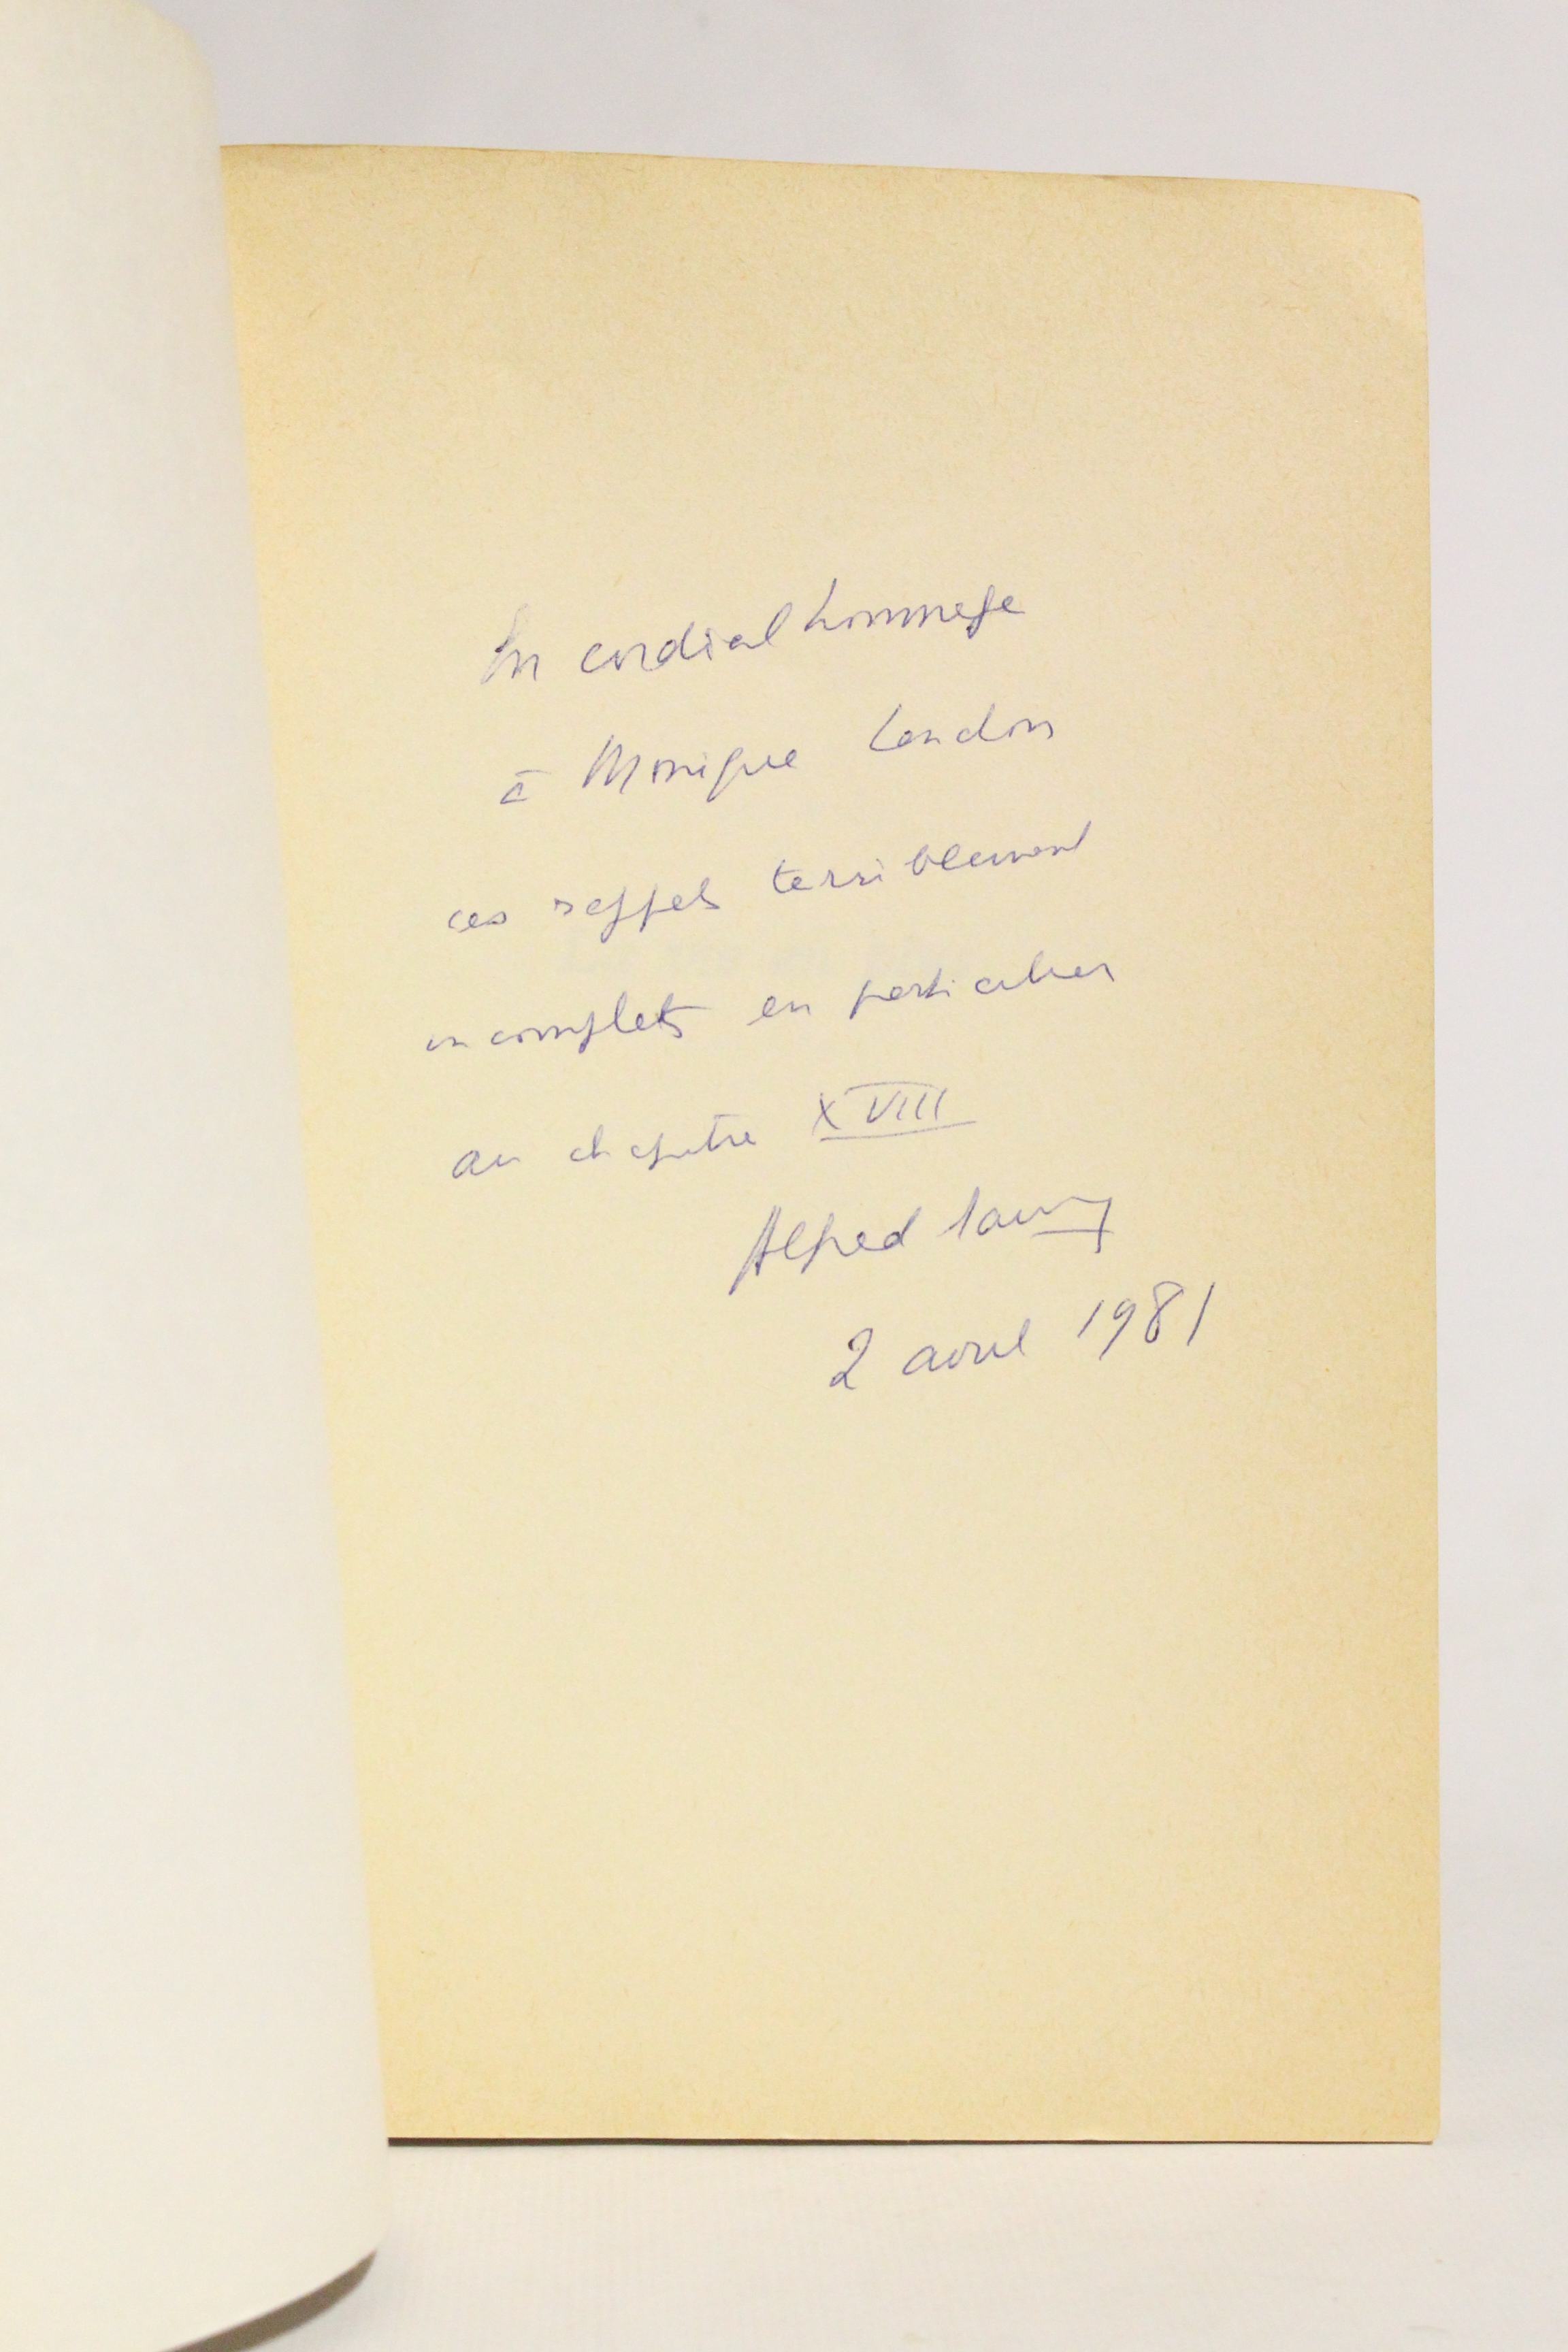 En cordial hommage
à Monique London
ces rappels terriblement
incomplets en particulier
au chapitre XVIII
Alfred Sauvy
2 avril 1981